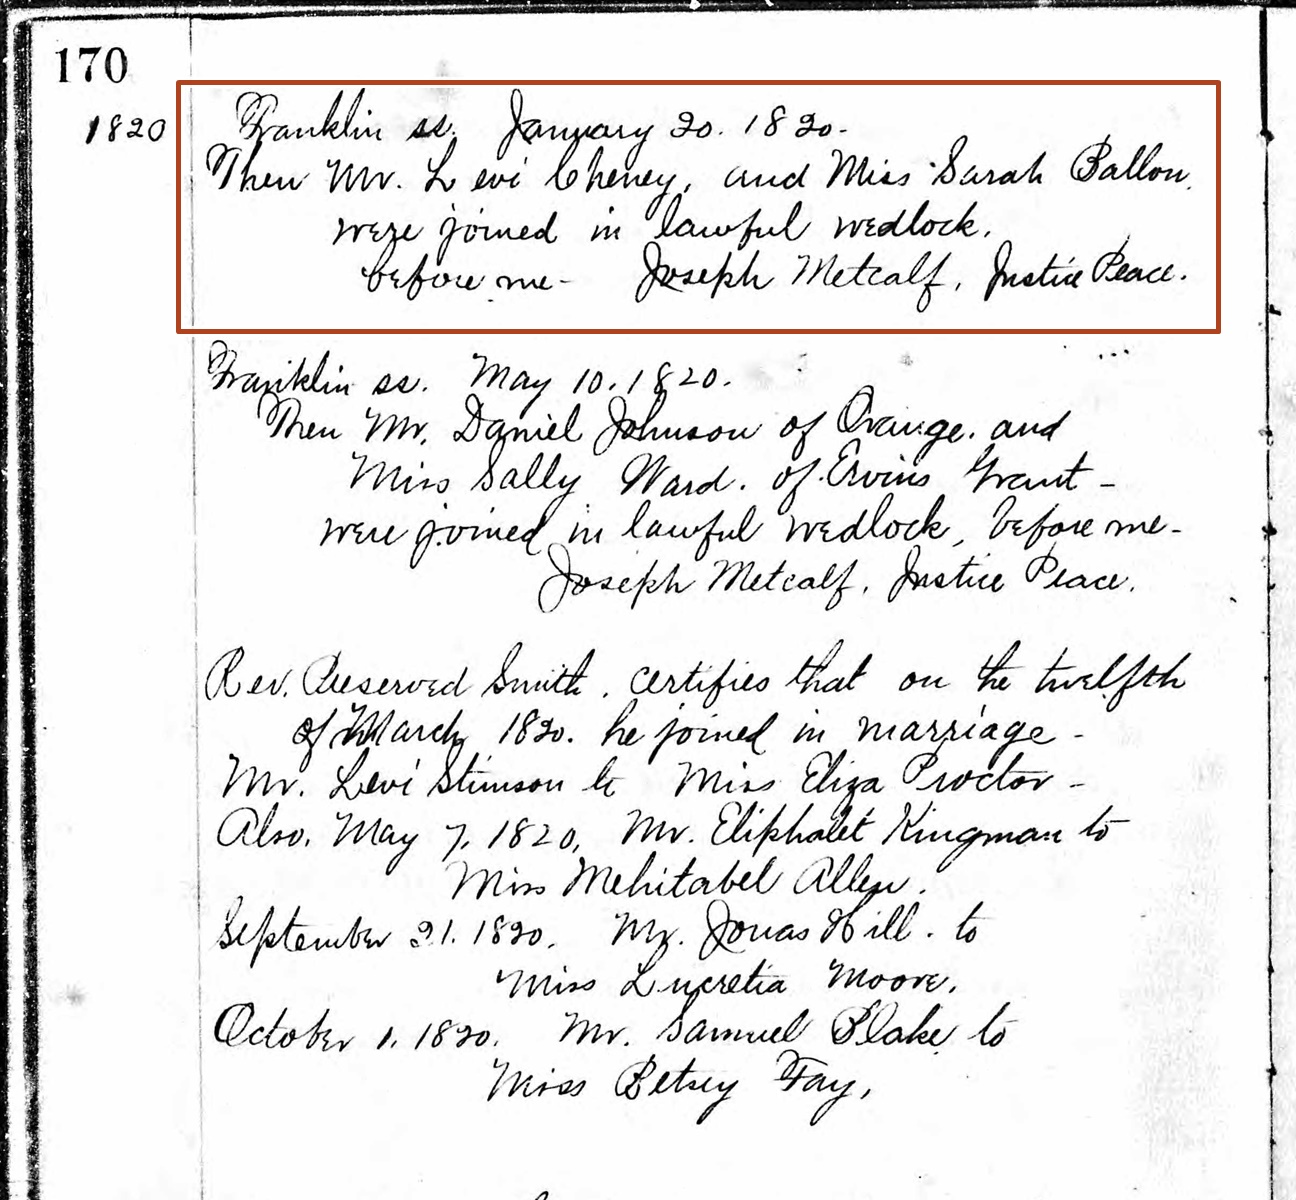 170
1820
Franklin ss. January 20. 1820-
Then Mr. Levi Cheney, and Miss Sarah Ballou.
were joined in lawful wedlock.
before me- Joseph Metcalf, Justice Peace.
Franklin ss. May 10. 1820.
Then Mr. Daniel Johnson of Orange. and
Miss Sally Ward. of Ervins Grant -
were joined in lawful wedlock, before me-
Joseph Metcalf, Justice Peace.
Rev. Preserved Smith, certifies that on the twelfth
of March 1820. he joined in marriage -
Mr. Levi Stimson to Miss Eliza Proctor -
Also. May 7, 1820, Mr. Eliphalet Kingman to
Miss Mehitabel Allen.
September 21. 1820. Mr. Jonas Hill. to
Miss Lucretia Moore.
October 1. 1820. Mr. Samuel Blake to
Miss Betsey Fay,